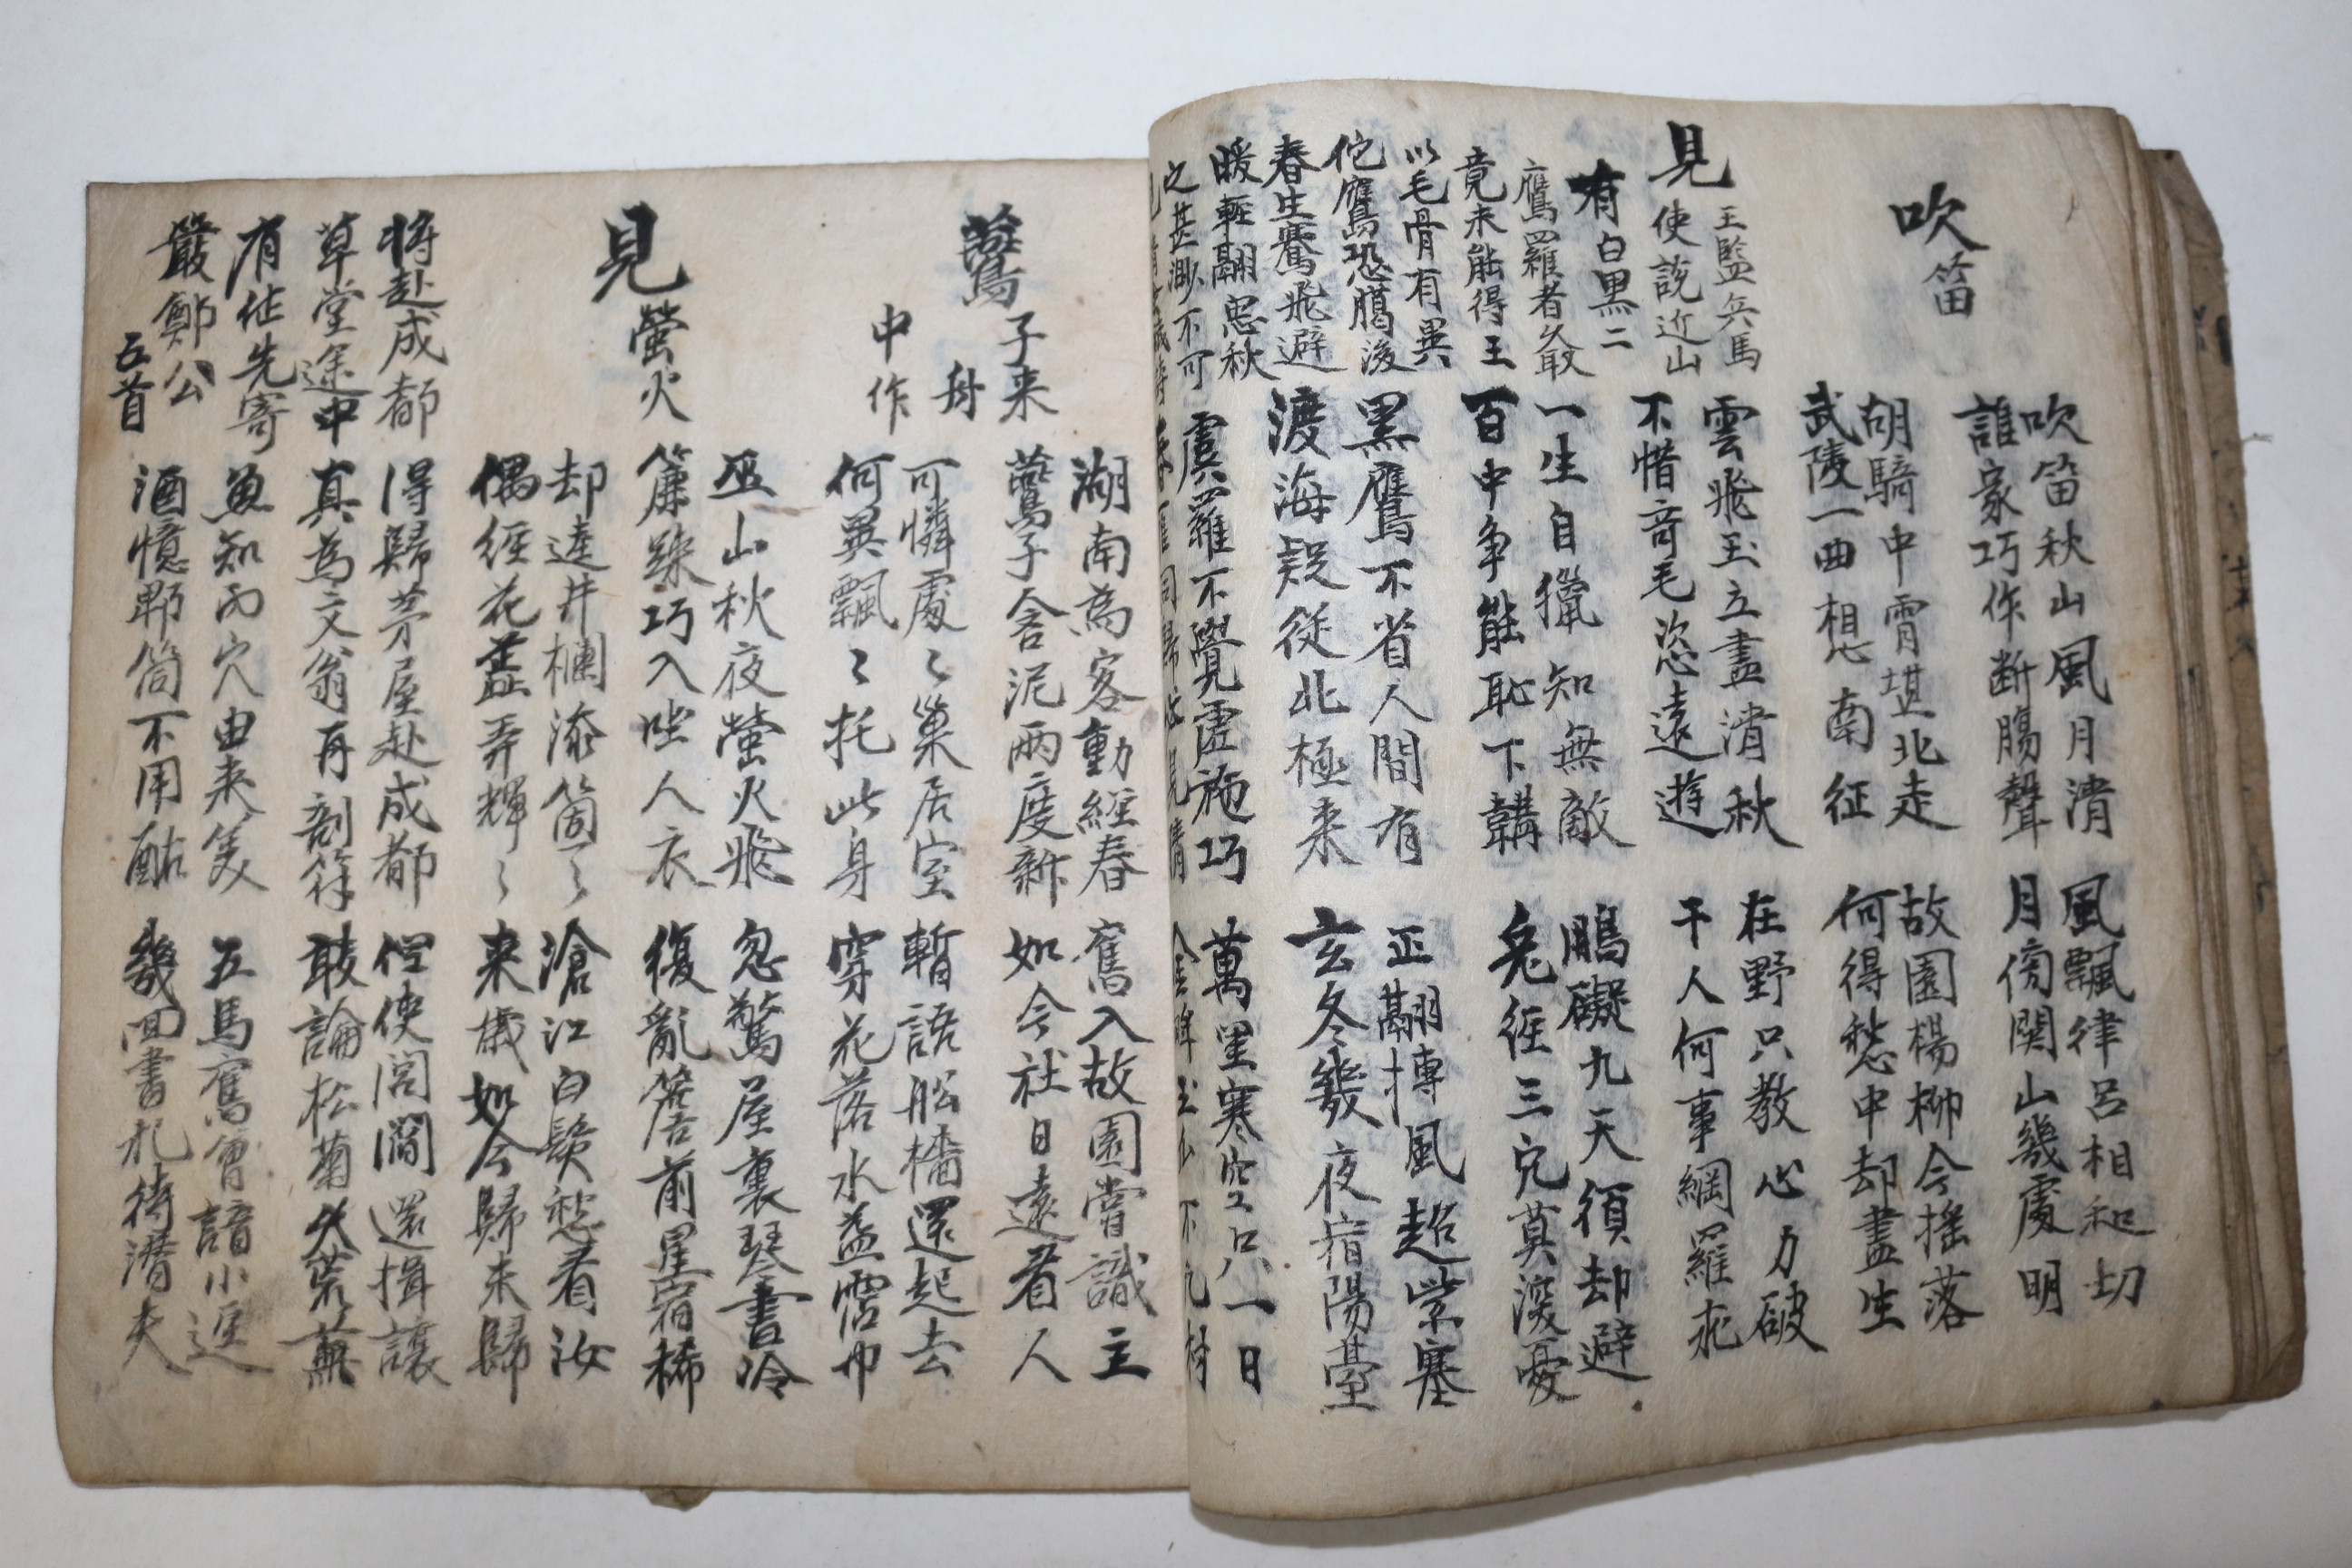 吹笛
吹笛秋山風月清
誰家巧作断腸聲
風飄律呂相和切
月傍関山幾處明
胡騎中宵堪北走
武陵一曲想南征
故園楊柳今搖落
何得愁中却盡生
見
王監兵馬
使說近山
有白黑二
鷹羅者久取
竟未能得王
以毛骨有異
佗鷹恐臈後
春生騫飛避
暖輕翮思秋
之甚渺不可
雲飛玉立盡清秋
不惜奇毛恣遠遊
在野只教心力破
千人何事網羅求
一生自獵知無敵
百中爭能恥下韝
鵬礙九天須却避
兔經三穴莫深憂
黑鷹不省人間有
渡海疑從北極来
正翮摶風超紫塞
玄冬幾夜宿陽臺
虞羅不覺虛施巧
萬里寒空只一日
鷰子来
舟
中作
湖南為客動經春
鷰子含泥兩度新
舊入故園嘗識主
如今社日遠看人
可憐處〻巢居室
何異飄〻托此身
暫語船檣還起去
穿花落水益霑巾
見螢火
巫山秋夜螢火飛
簾踈巧入坐人衣
忽驚屋裏琴書冷
復亂簷前星宿稀
却遶井欄添箇〻
偶經花蕋弄輝〻
滄江白髮愁看汝
来歲如今歸未歸
將赴成都
草堂途中
有作先寄
嚴鄭公
五首
得歸茅屋赴成都
真為文翁再剖符
但使閭閻還揖讓
敢論松菊久荒蕪
魚知丙穴由来美
酒憶郫筒不用酤
五馬舊曾諳小逕
幾回書札待潛夫